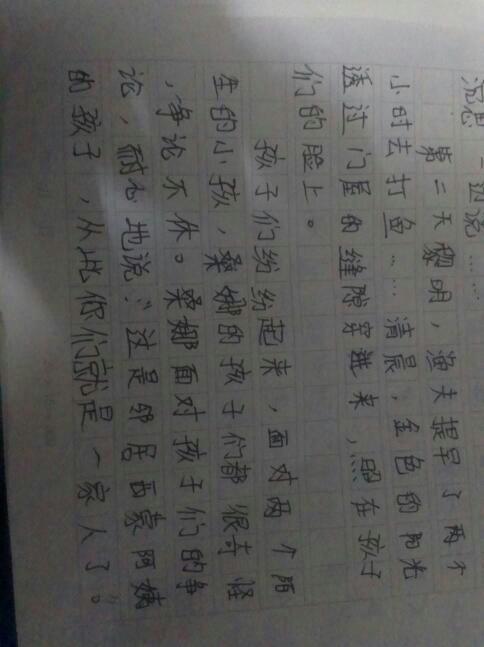 沉思一边说……
第二天黎明，渔夫提早了两个
小时去打鱼……清晨，金色的阳光
透过门屋的缝隙穿进来，照在孩子
们的脸上。
孩子们纷纷起来，面对两个陌
生的小孩，桑娜的孩子们都很奇怪
，争论不休。桑娜面对孩子们的争
论，耐心地说：“这是邻居西蒙阿姨
的孩子，从此你们就是一家人了。”